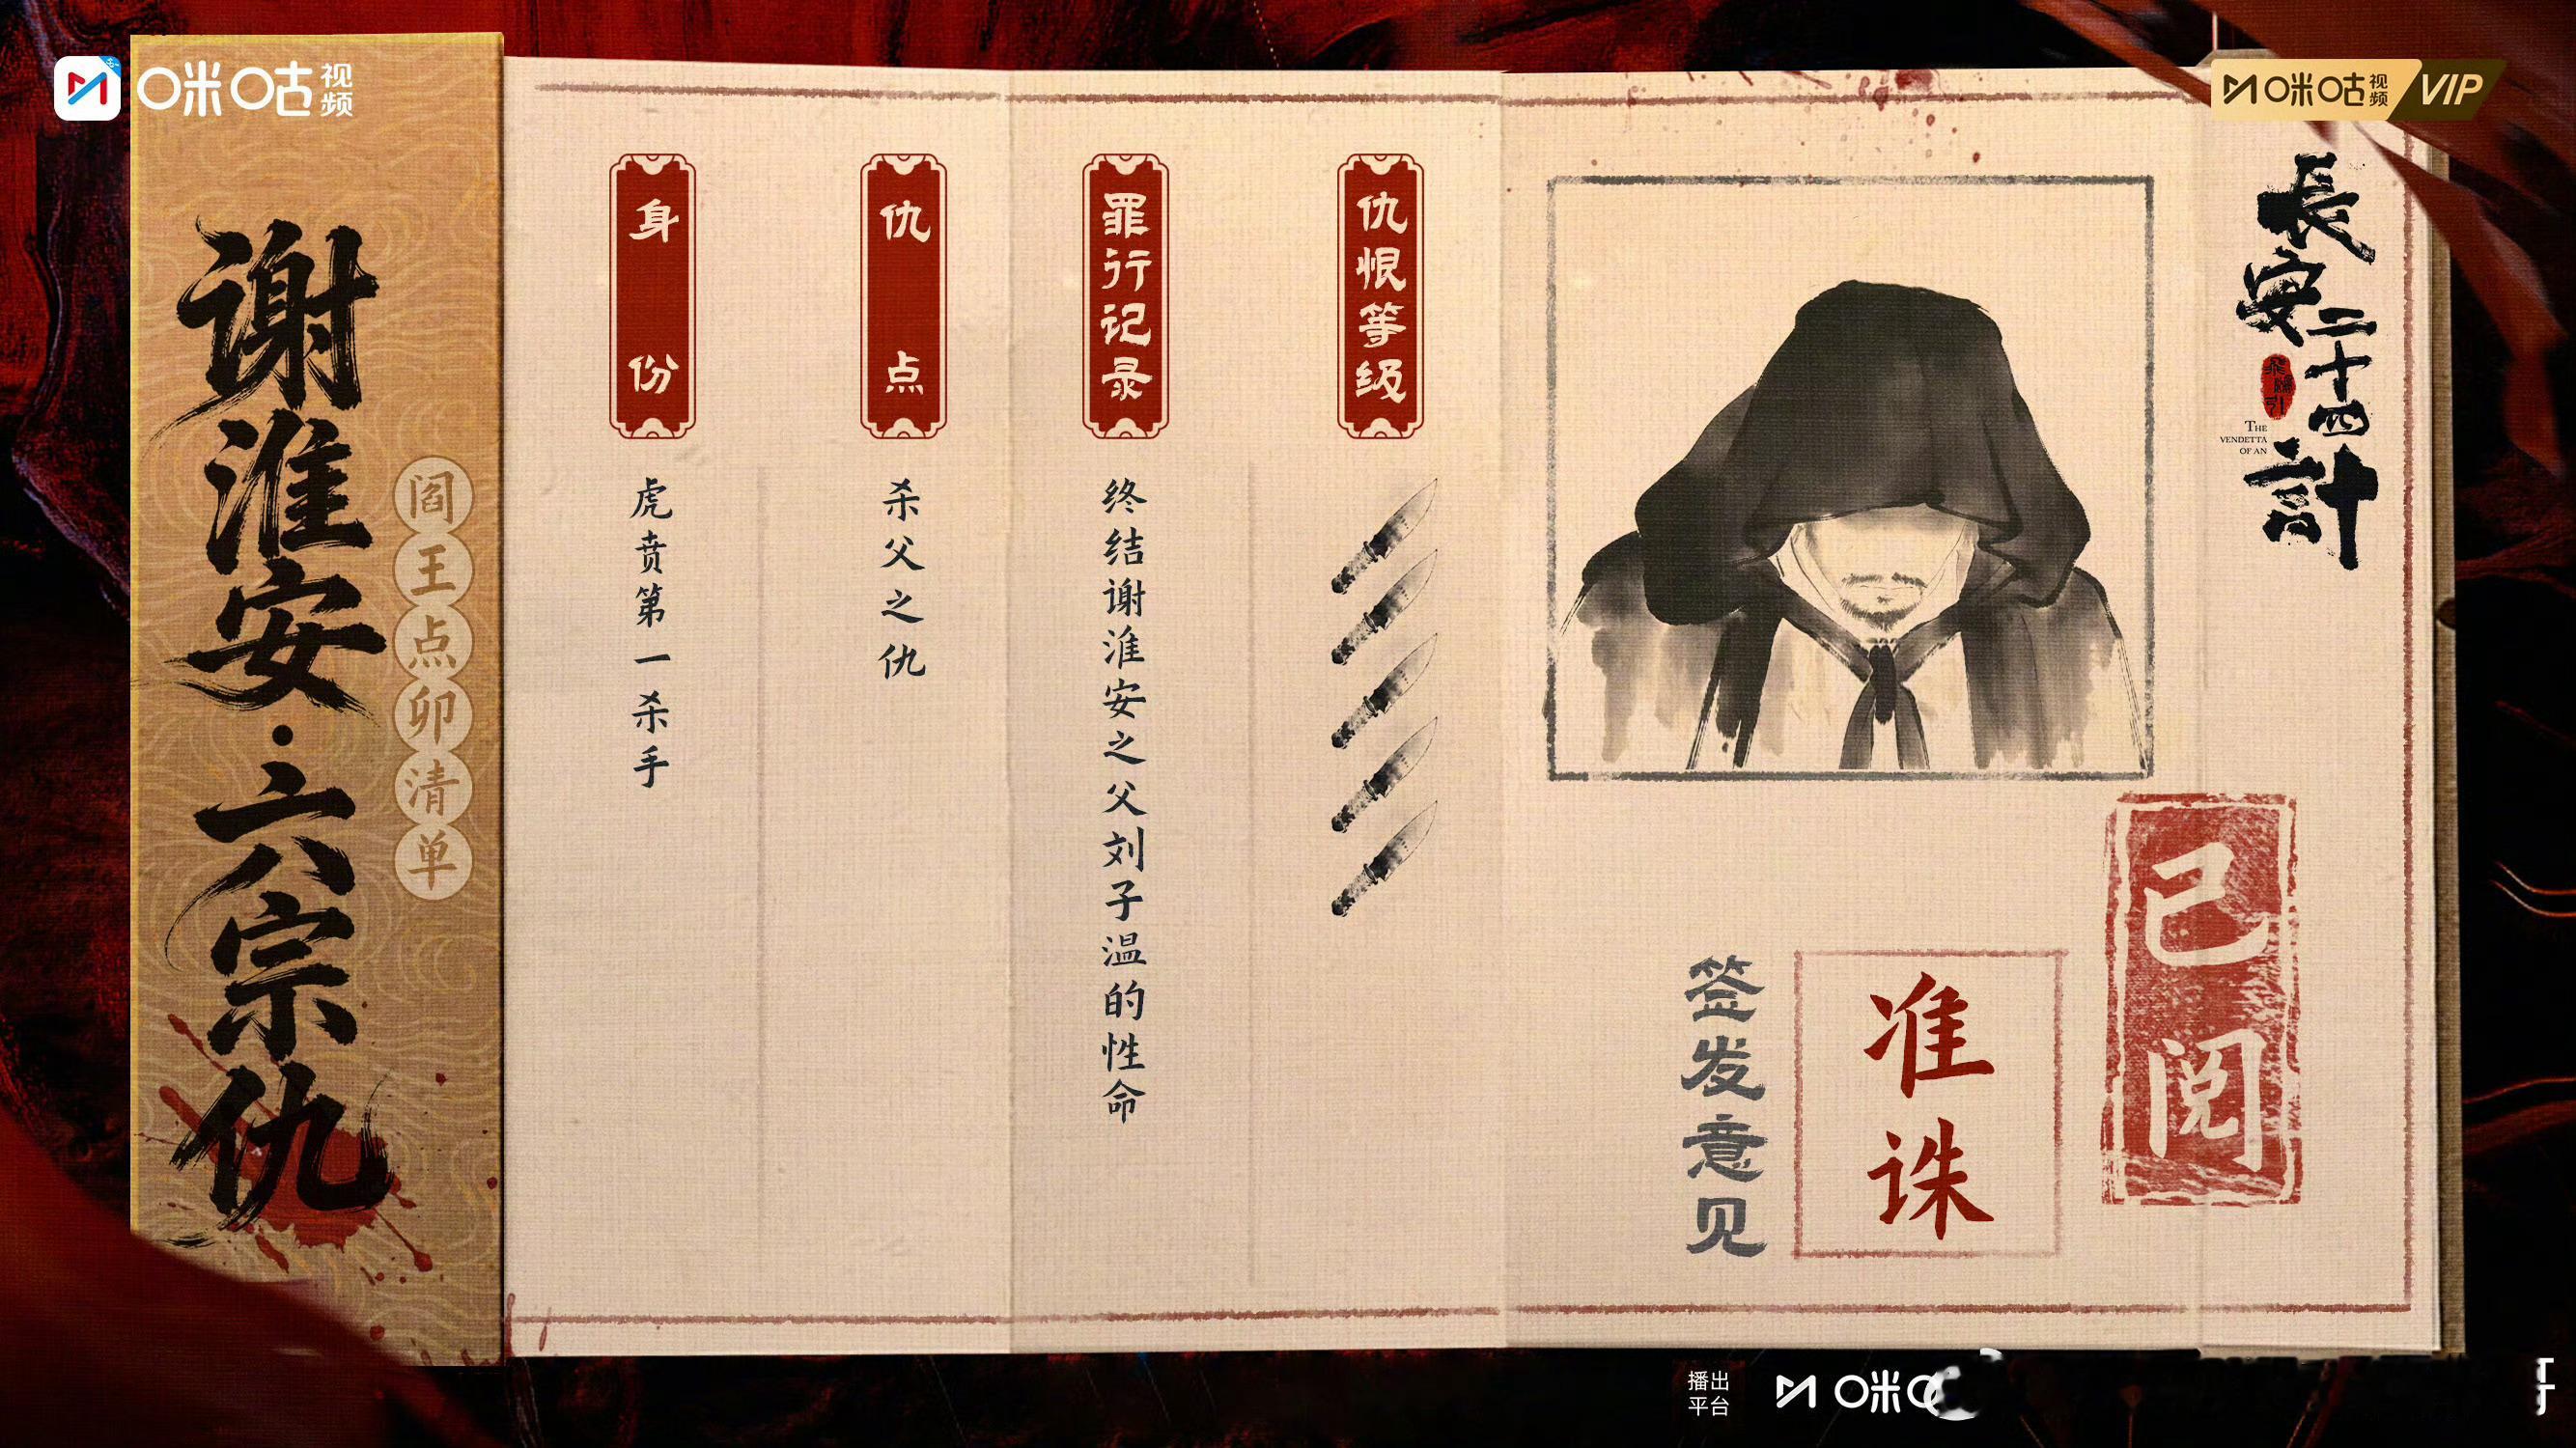 咪咕视频
咪咕视频 VIP
谢淮安·六宗仇
阎王点卯清单
身份
虎贲第一杀手
仇点
杀父之仇
罪行记录
终结谢淮安之父刘子温的性命
仇恨等级
長安二十四計
THE
VENDETTA
OF AN
签发意见
准诛
已阅
播出
平台
咪